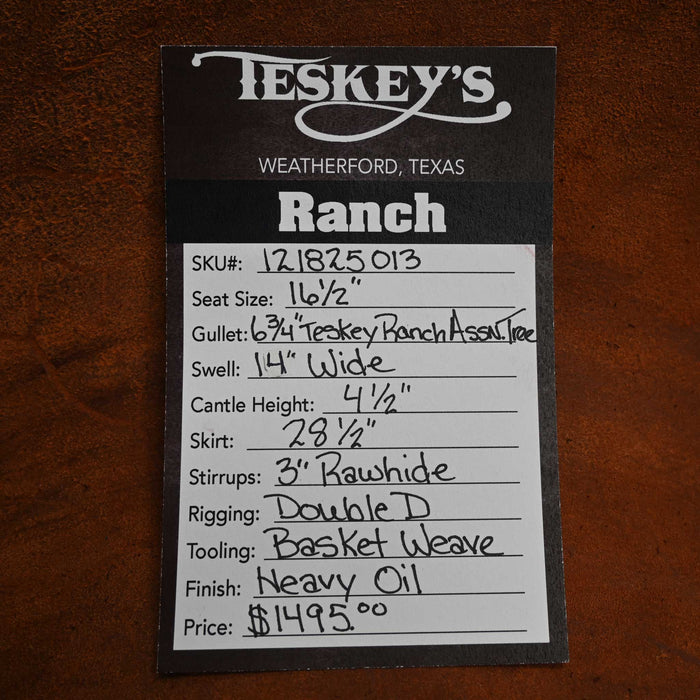 TESKEY'S
WEATHERFORD, TEXAS
Ranch
SKU#: 121825013
Seat Size: 16 1/2"
Gullet: 6 3/4" Teskey Ranch Assn. Tree
Swell: 14" Wide
Cantle Height: 4 1/2"
Skirt: 28 1/2"
Stirrups: 3" Rawhide
Rigging: Double D
Tooling: Basket Weave
Finish: Heavy Oil
Price: $1495.00